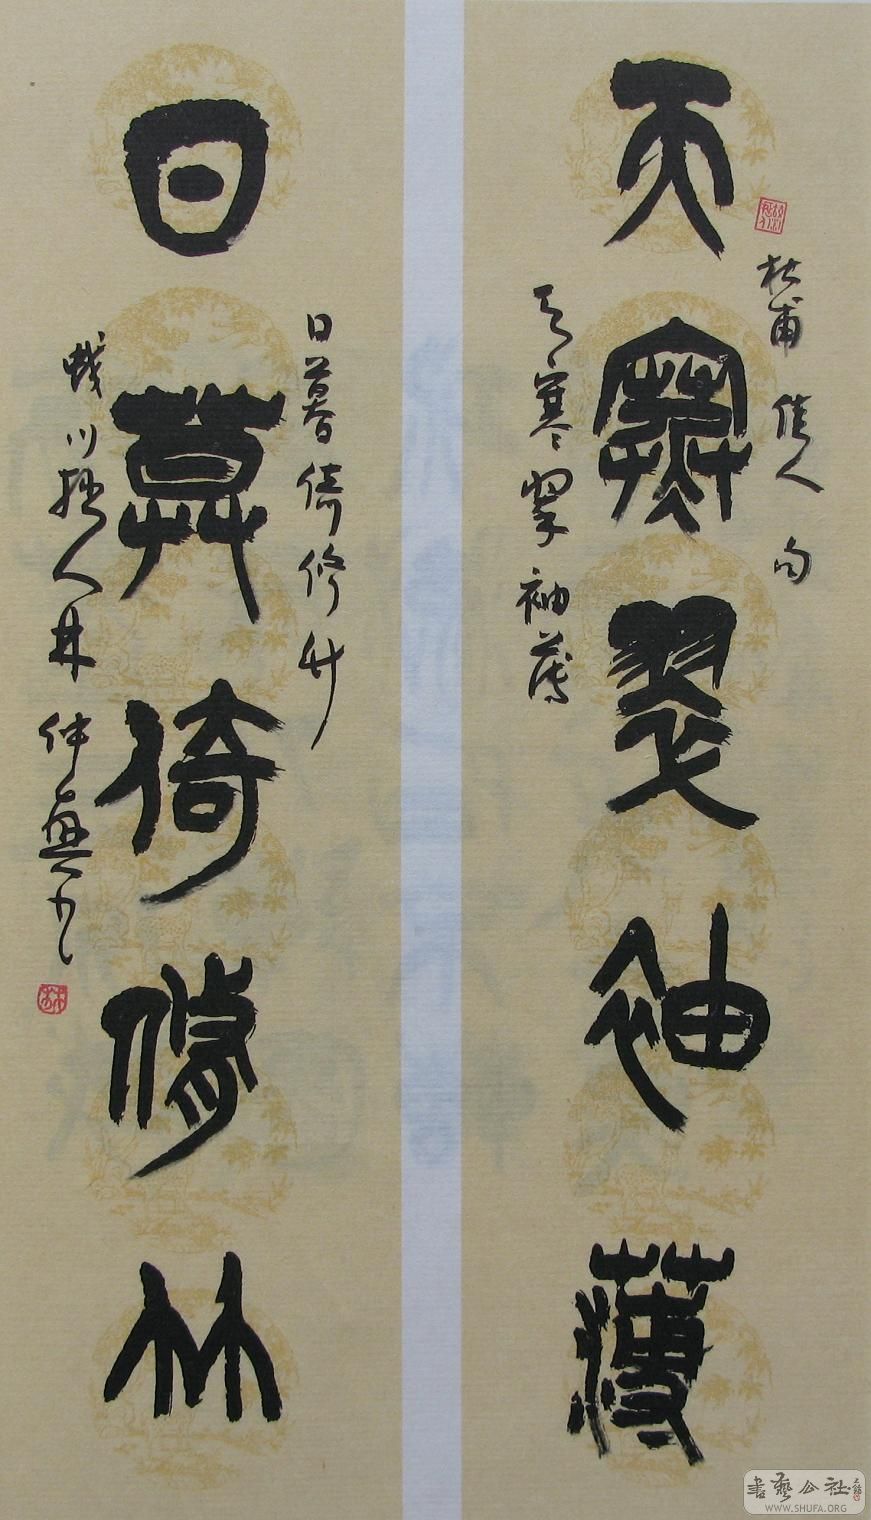 天寒翠袖薄
杜甫 佳人 句
天寒翠袖薄
日暮倚修竹
日暮倚修竹
川 人 林仲兴书
书艺公社
WWW.SHUFA.ORG